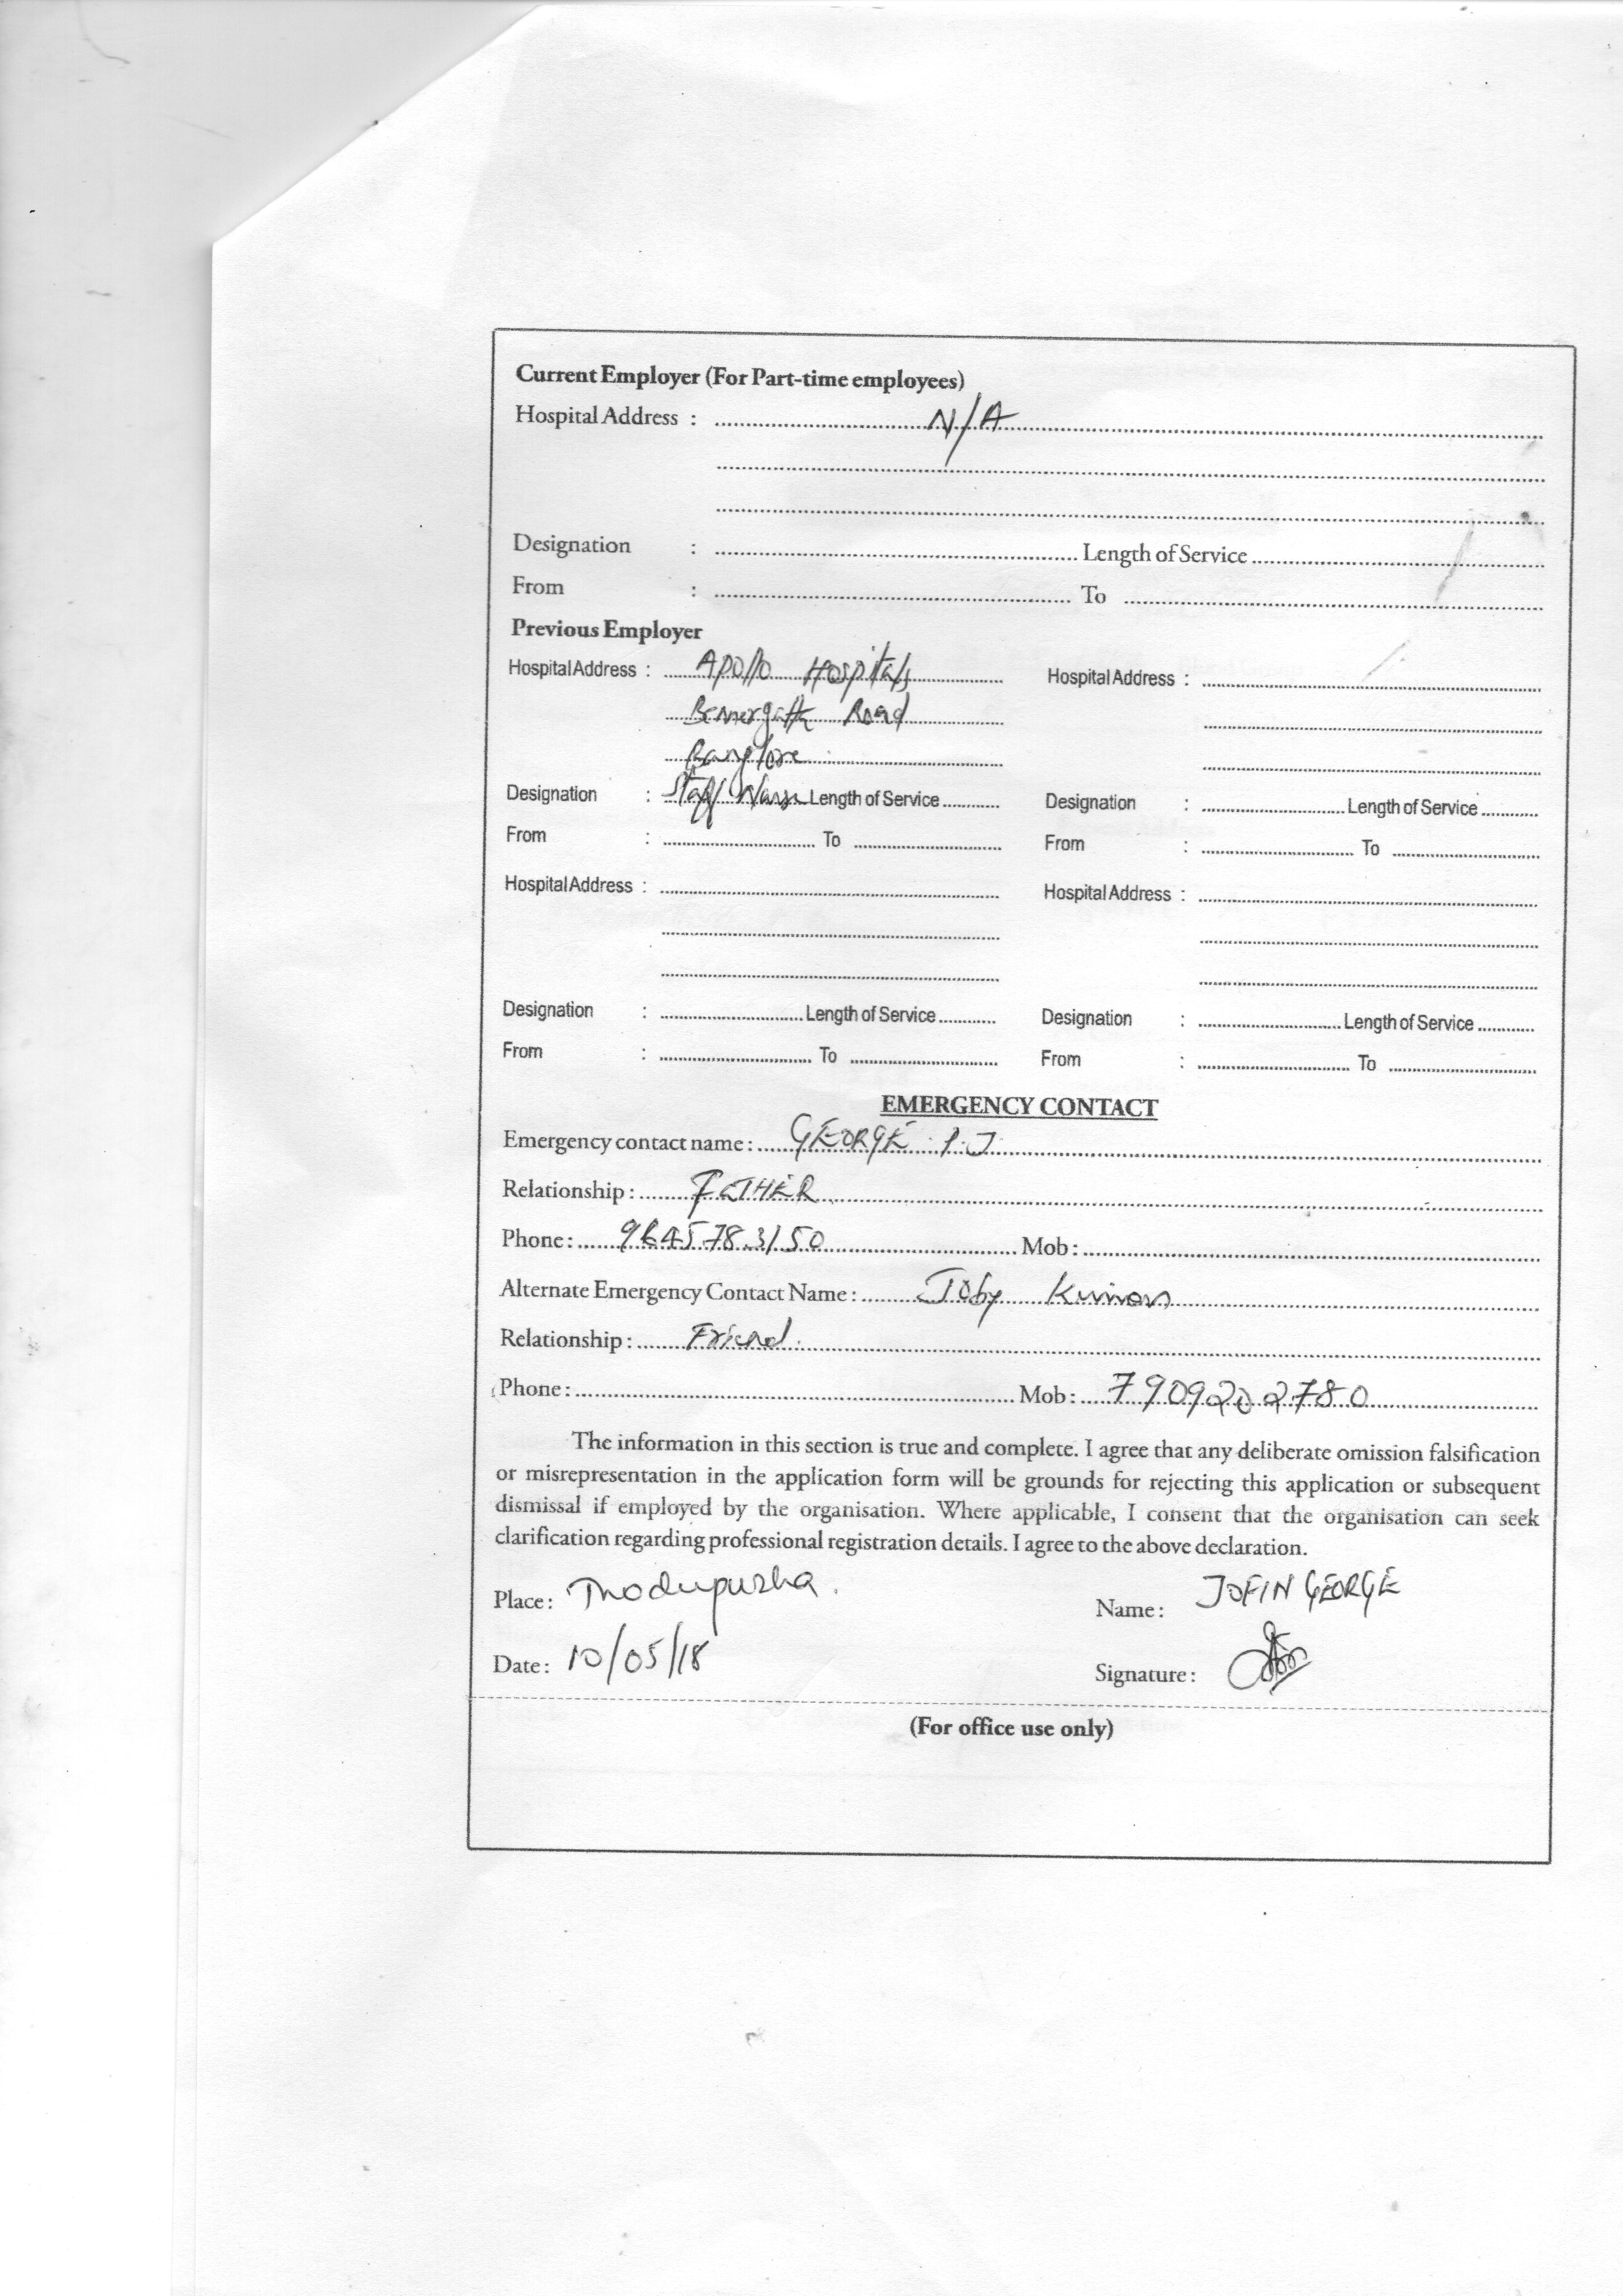 Current Employer (For Part-time employees)
Hospital Address : N/A
Designation : Length of Service
From : To
Previous Employer
Hospital Address : Apollo Hospitals Hospital Address :
Road
Designation : Staff Nurse Length of Service Designation : Length of Service
From : To From : To
Hospital Address : Hospital Address :
Designation : Length of Service Designation : Length of Service
From : To From : To
EMERGENCY CONTACT
Emergency contact name : GEORGE P.J
Relationship : FATHER
Phone : 9645783150 Mob :
Alternate Emergency Contact Name : Toby
Relationship : Friend.
Phone : Mob : 7909202780
The information in this section is true and complete. I agree that any deliberate omission falsification
or misrepresentation in the application form will be grounds for rejecting this application or subsequent
dismissal if employed by the organisation. Where applicable, I consent that the organisation can seek
clarification regarding professional registration details. I agree to the above declaration.
Place : Thodupuzha. Name : JOFIN GEORGE
Date : 10/05/18 Signature :
(For office use only)